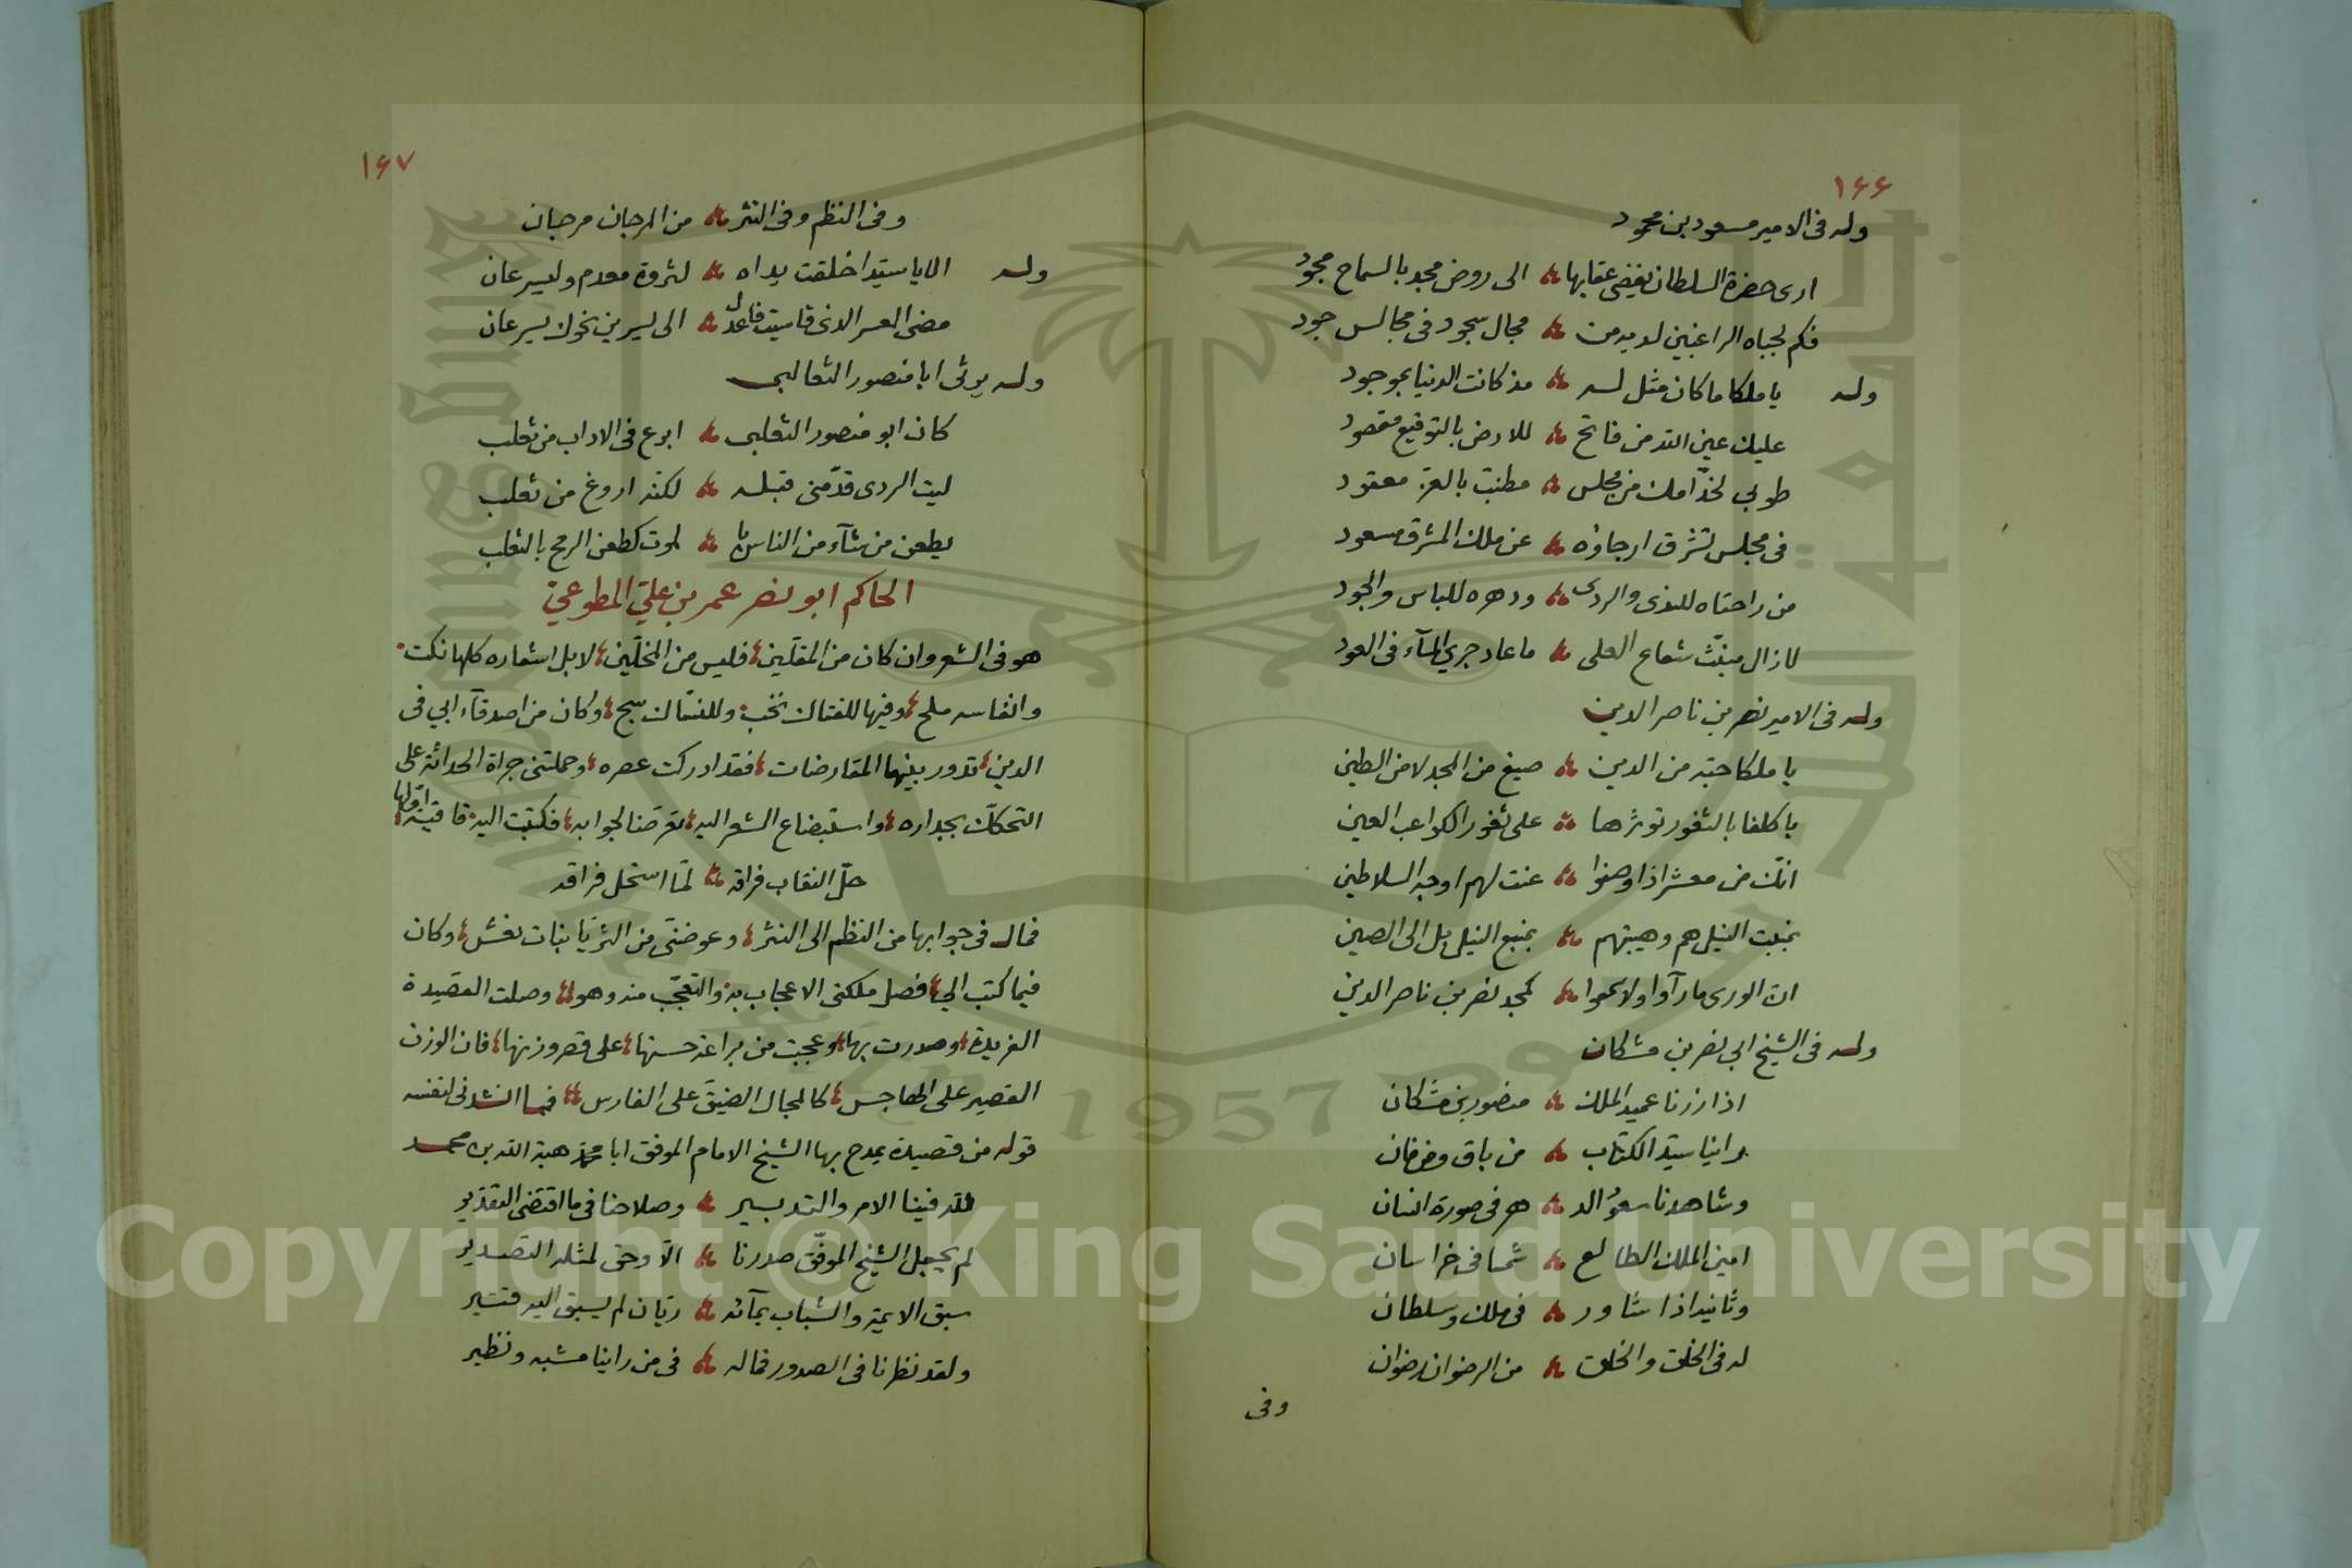 ١٦٦
وله فى الامير مسعود بن محمود
ارى حضرة السلطان يفضى عقابها الى روض مجد بالسماح مجود
فكم لجباه الراغبين لديه من مجال سجود فى مجالس جود
وله يا ملكا ما كان مثل له مذ كانت الدنيا بموجود
عليك عين الله من فاتح للارض بالتوقيع مقصود
طوبى لخدّامك من مجلس مطنب بالعز معقود
فى مجلس تشرق ارجاؤه عن ملك المشرق مسعود
من راحتاه للندى والردى ودهره للباس والجود
لازال منبثّ شعاع العلى ما عاد جرى المآء فى العود
وله فى الامير نصر بن ناصر الدين
يا ملكا حبّه من الدين صيغ من المجد لا من الطين
يا كلفا بالثغور توثرها على ثغور الكواعب العين
انّك من معشر اذا وصفوا عنت لهم اوجه السلاطين
بمنبت النيل هم وهيبتهم بمنبع النيل بل الى الصين
ان الورى ما رآوا ولا سمعوا كمجد نصر بن ناصر الدين
وله فى الشيخ ابي نصر بن مشكان
اذا زرنا عميد الملك منصور بن مشكان
راينا سيد الكتاب من باق ومن فان
وشاهدنا سموّ الد هر فى صورة انسان
امين الملك الطالع شمسا فى خراسان
وثانيه اذا شاور فى ملك وسلطان
له فى الخلق والخلق من الرضوان رضوان
وفى
١٦٧
وفى النظم وفى النثر من المرجان مرجان
وله الا يا سيدا خلقت يداه لثروة معدم وليسر عان
مضى العسر الذى قاسيت فاعدل الى يسرين نحوك يسرعان
وله يرثى ابا منصور الثعالبى
كان ابو منصور الثعلبى ابرع فى الاداب من ثعلب
ليت الردى قدّمنى قبله لكنه اروغ من ثعلب
يطعن من شآء من الناس با لموت كطعن الرمح بالثعلب
الحاكم ابو نصر عمر بن علي المطوعي
هو فى الشعر وان كان من المقلين فليس من المخلّين لا بل اشعاره كلها نكت
وانفاسه ملح وفيها للفتاك نخب وللنسّاك سبح وكان من اصدقآء ابي فى
الدين تدور بينهما المقارضات فقد ادركت عصره وحملتنى جراة الحداثة على
التحكّك بجداره واستبضاع الشعر اليه تعرضا لجوابه فكتبت اليه قافيته اولها
حلّ النقاب فراقه لمّا استحل فراقه
فمال فى جوابها من النظم الى النثر وعوضنى من الثريّا بنات نعش وكان
فيما كتب الىّ فصل ملكنى الاعجاب به والتعجّب منه وهو وصلت القصيدة
الفريدة وصدرت بها وعجبت من براعة حسنها على قصر وزنها فان الوزن
القصير على الهاجس كالمجال الضيق على الفارس فمما انشدنى لنفسه
قوله من قصيدة يمدح بها الشيخ الامام الموفق ابا محمد هبة الله بن محمد
لله فينا الامر والتدبير وصلاحنا فى ما اقتضى التقدير
لم يجعل الشيخ الموفّق صدرنا الّا وحق لمثله التصدير
سبق الايمة والشباب بمآئه ريّان لم يسبق اليه قتير
ولقد نظرنا فى الصدور فما له فى من راينا مشبه ونظير
Copyright © King Saud University
1957